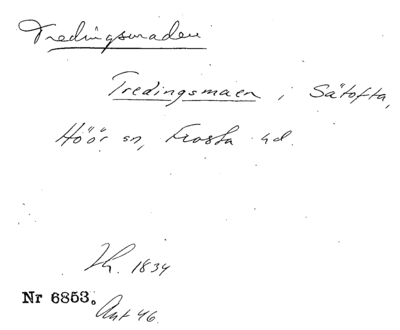 Tredingsmaden
Tredingsmaen i Sätofta,
Höör sn, Frosta hd.
Th. 1834
Nr 6853.
Ant 46